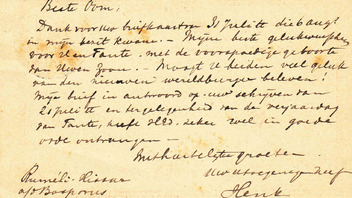 Beste Oom!
Dank voor uw briefkaart van 21 Juli ll die 6 Aug!
in mijn bezit kwam. — Mijne beste gelukwenschen
voor U en Tante. met de voorspoedige geboorte
van Uwen zoon. — Moogt U beiden veel geluk
van den nieuwen wereldburger beleven!
Mijn brief in antwoord op uw schrijven van
21 Juli en ter gelegenheid van de verjaardag
van Tante, heeft U zeker wel in goede
orde ontvangen —
Met hartelijke groeten.
Uw toegenegen Neef
Henk
Rumeli-Hissar
a/d Bosporus